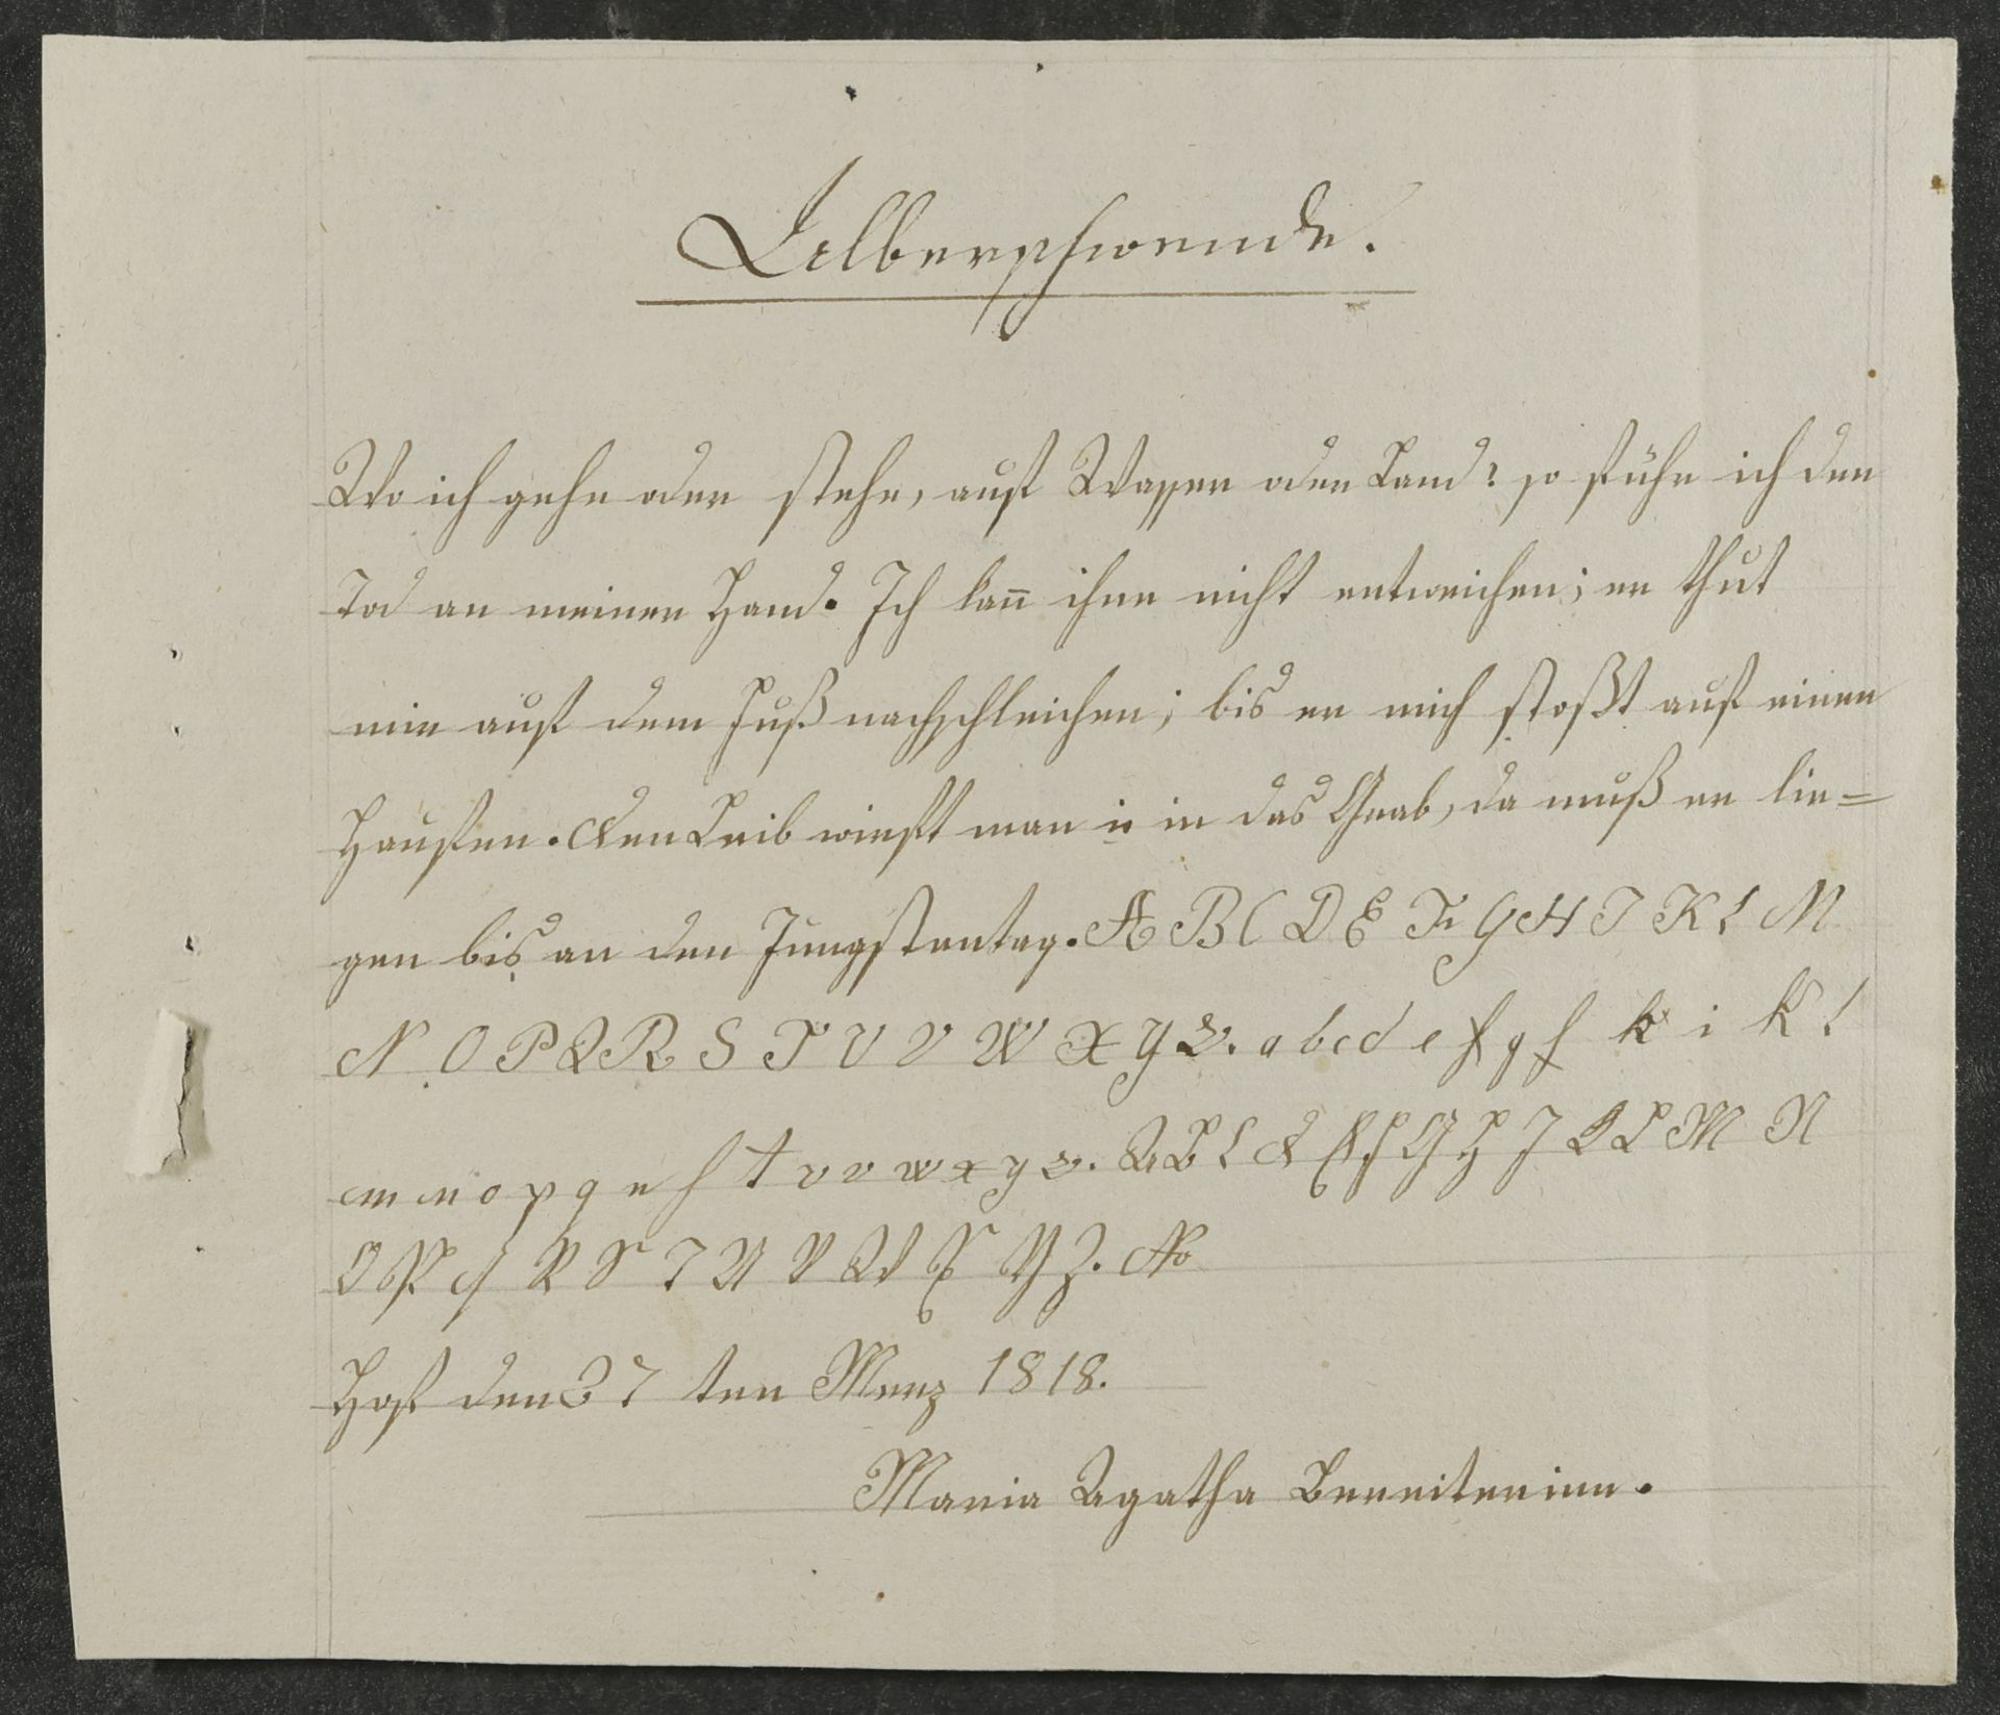 Alberschwende.
Wo ich gehe oder stehe, auf Wasser oder Land? so führ ich den
Tod an meiner Hand. Ich kañ ihm nicht entweichen; er thut
mir auf dem Fuß nachschleichen; bis er mich stoßt auf einen
Haufen. Den Leib wirft man in das Grab, da muß er lie=
gen bis an den Jungstentag. A B C D E F G H I K L M
N O P Q R S T U V W X Y Z. a b c d e f g h k i k l
m n o p q r s t v v w x y z. A B C D E F G H I K L M N
O P Q R S T U V W X Y Z. No
Hof den 27 ten Merz 1818.
Maria Agatha Bereiterinn.